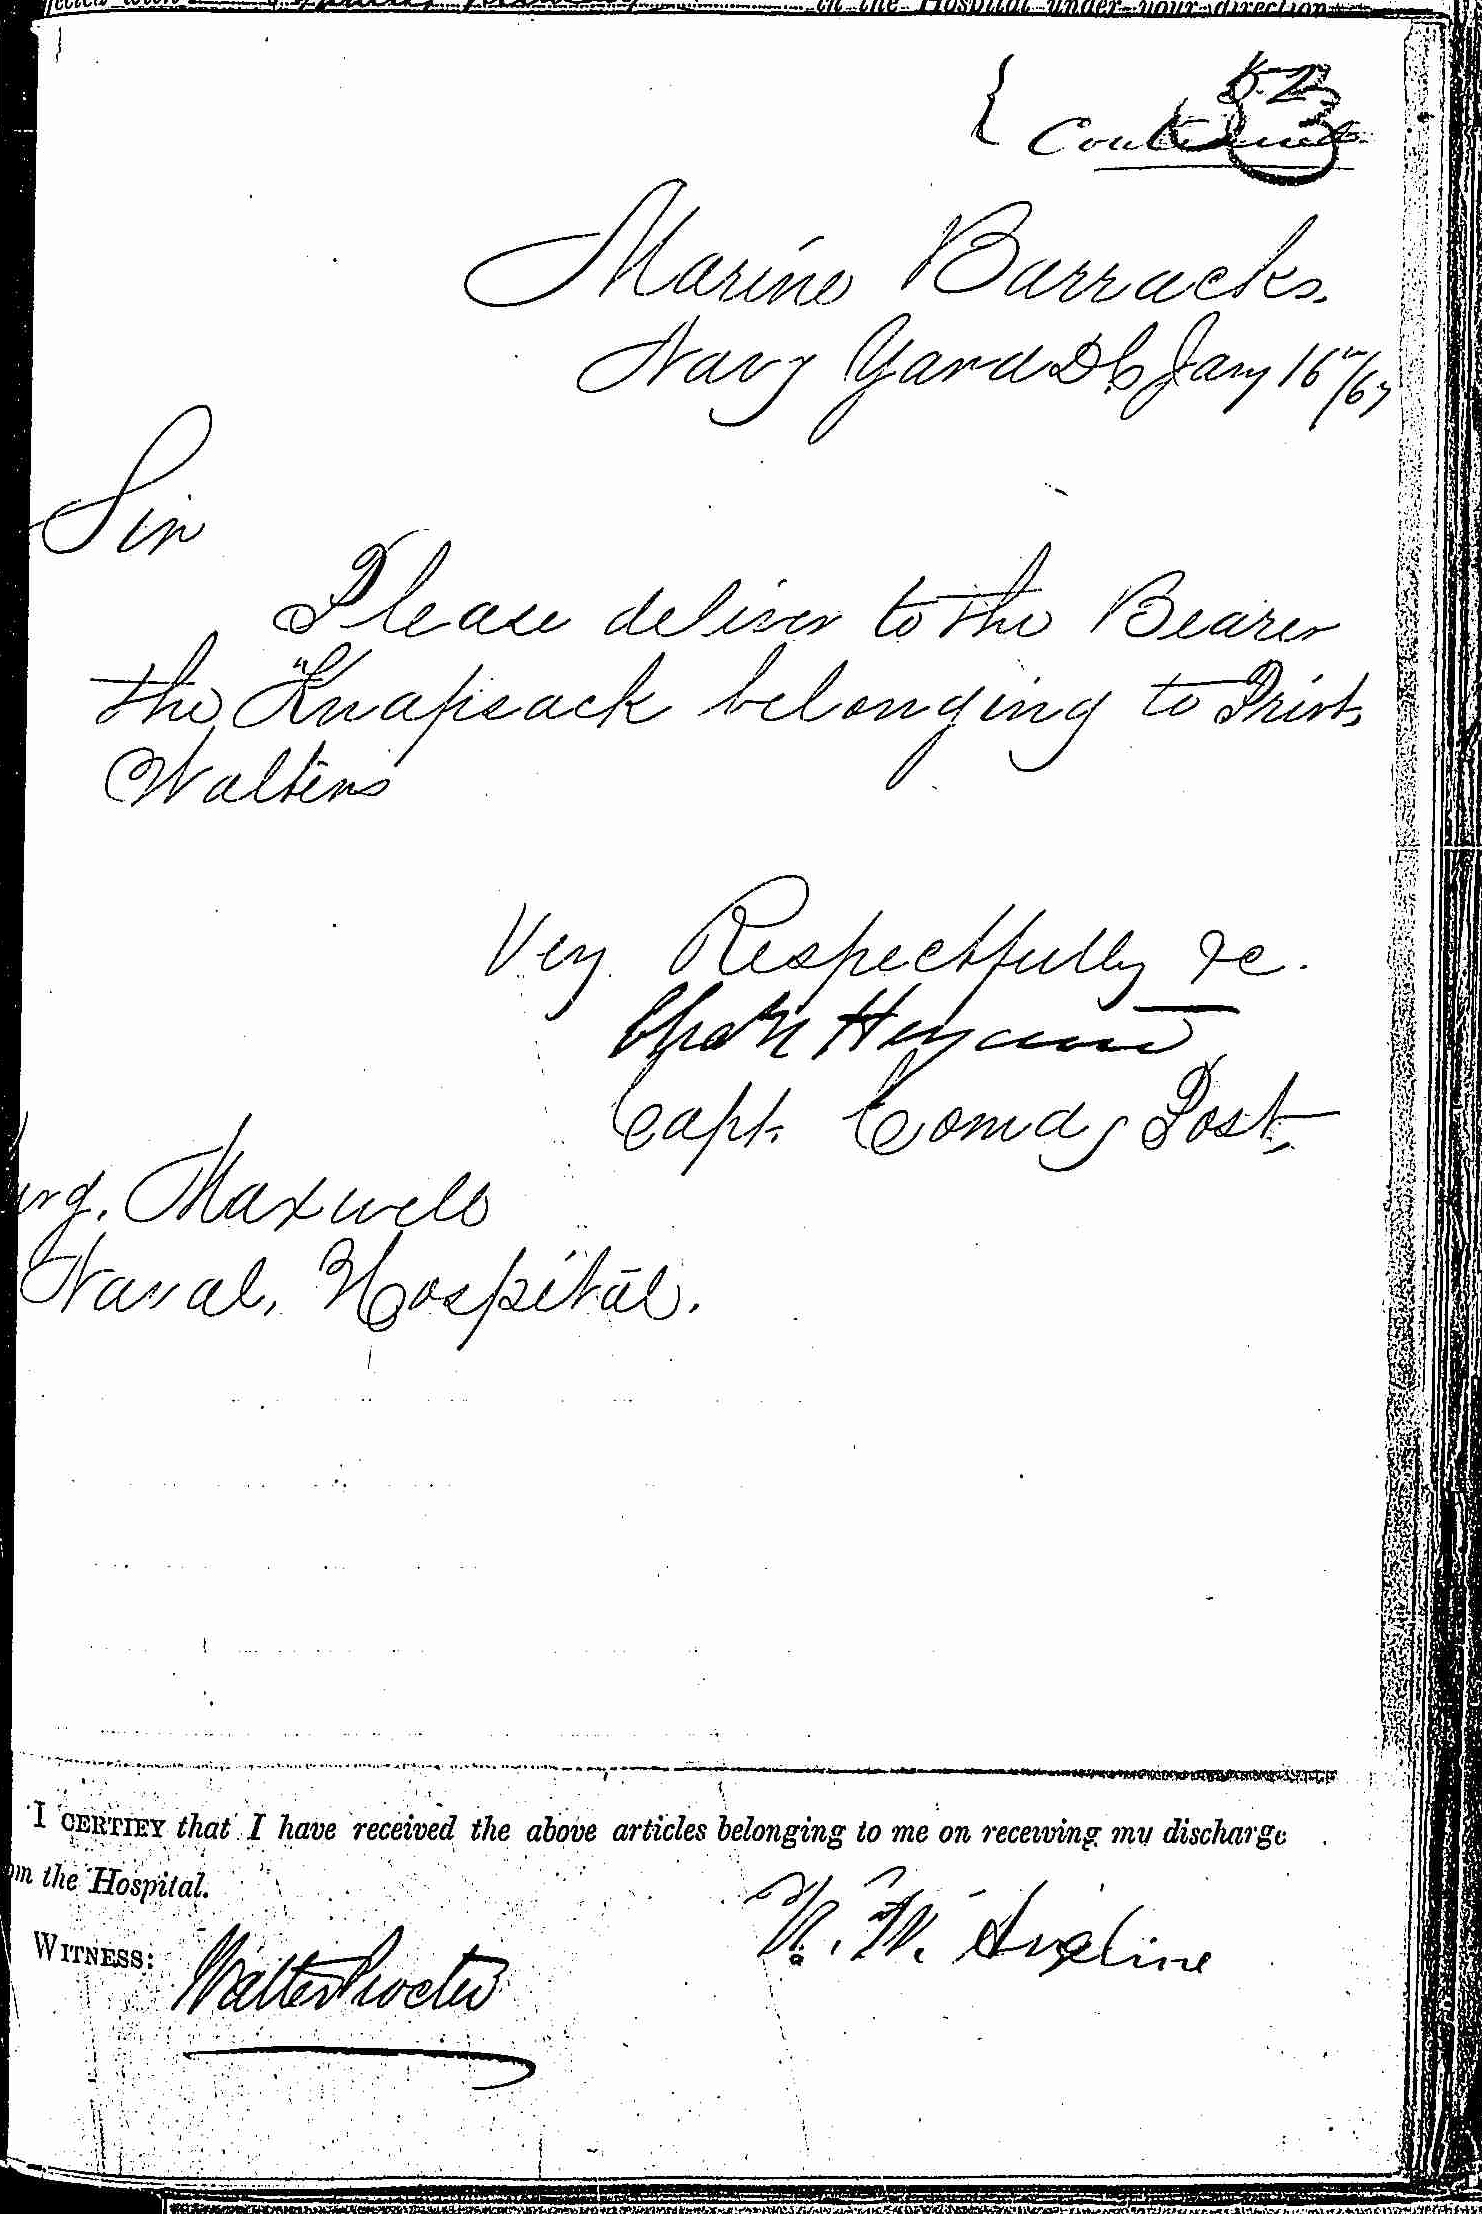 in the Hospital under your direction
52
{ Continued
Marine Barracks.
Navy Yard D.C Jany 16th/67
Sir
Please deliver to the Bearer
the Knapsack belonging to Privt,
Walters
Very Respectfully &c.
Heywood
Capt. Comdg Post,
urg. Maxwell
Naval, Hospital.
I CERTIFY that I have received the above articles belonging to me on receiving my discharge
om the Hospital.
WITNESS: Walter Procter